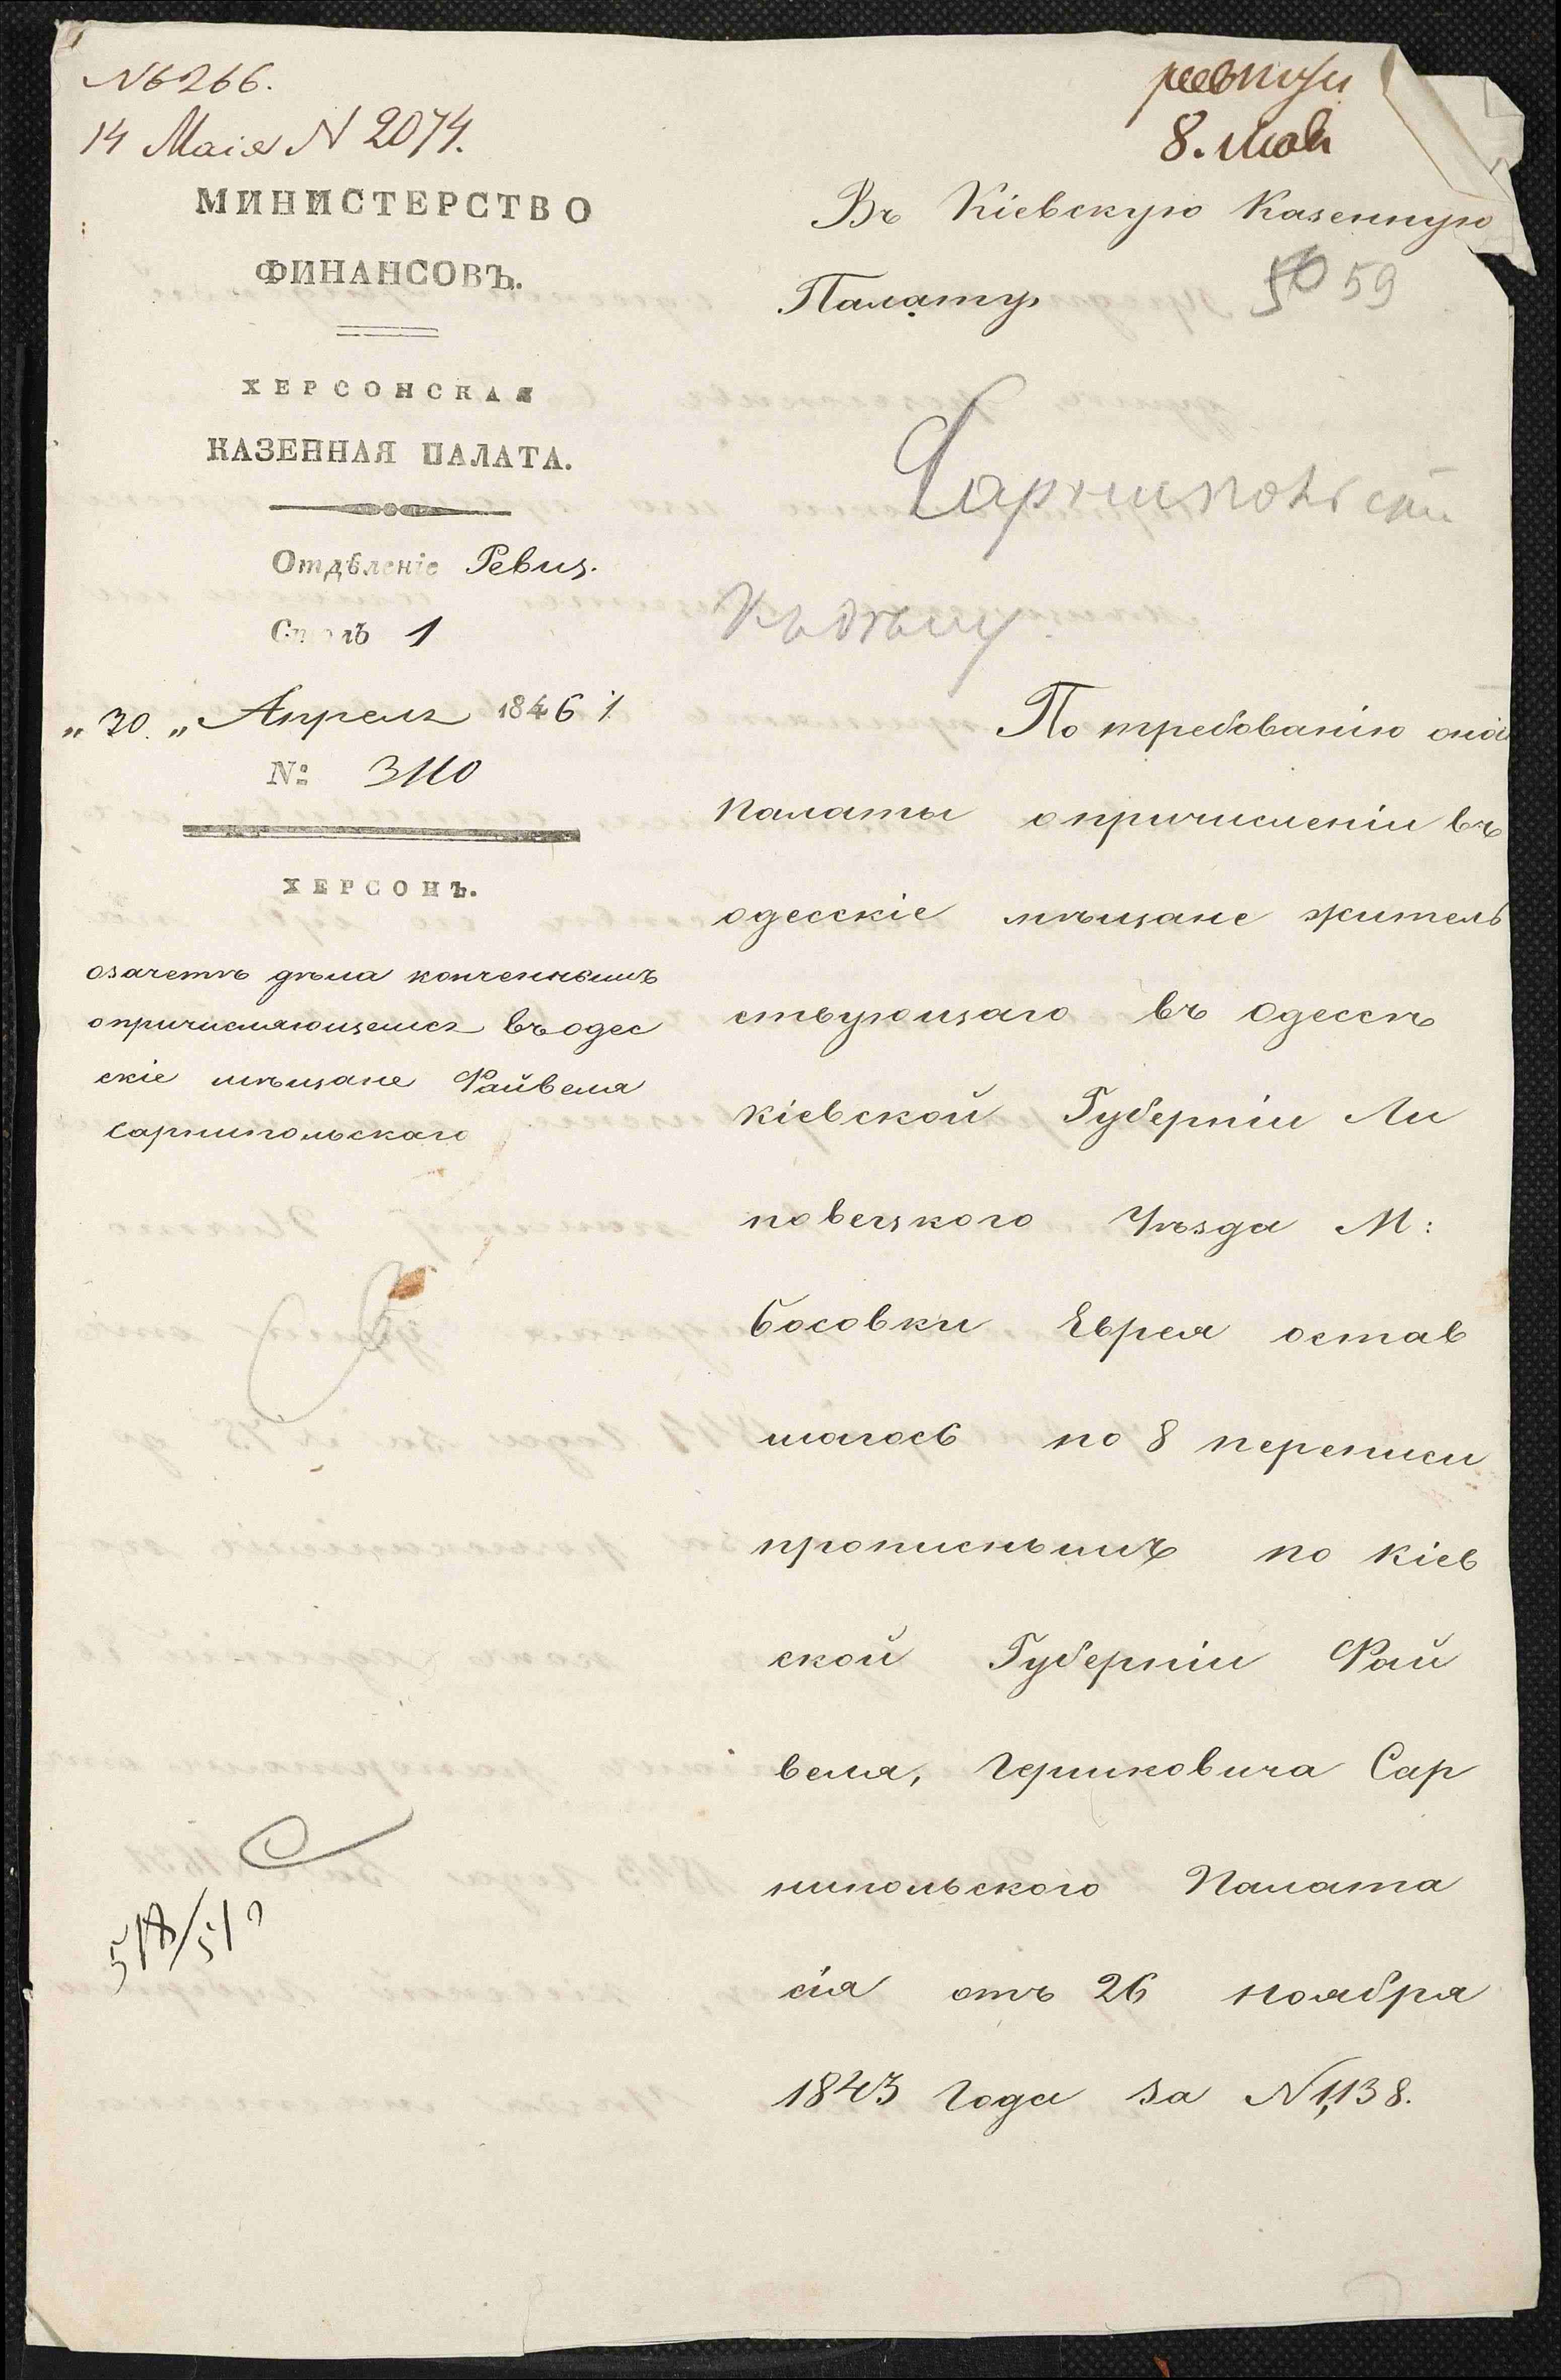 N 6266.
14 Маія N 2074.
МИНИСТЕРСТВО
ФИНАНСОВЪ.
ХЕРСОНСКАЯ
КАЗЕННАЯ ПАЛАТА.
Отдѣленіе Ревиз.
Столъ 1
„30„ Апреля 1846 г.
№ 3110
ХЕРСОНЪ.
озачетѣ дѣла конченнымъ
опричисляющемся въ одес
скіе мѣщане Файвеля
сарнипольскаго
518/519
8. мая
59
Въ Кіевскую Казенную
Палату
Сарнипольскій
Къ дѣлу.
По требованію оной
палаты опричисленіи въ
одесскіе мѣщане житель
ствующаго въ Одессѣ
кіевской Губерніи Ли
повецкого Уѣзда М:
босовки Еврея остав
шагось по 8 переписи
прописнымъ по Кіев
ской Губерніи Фай
веля, Гершковича Сар
нипольского Палата
сія отъ 26 ноября
1843 Года за N 1,138.